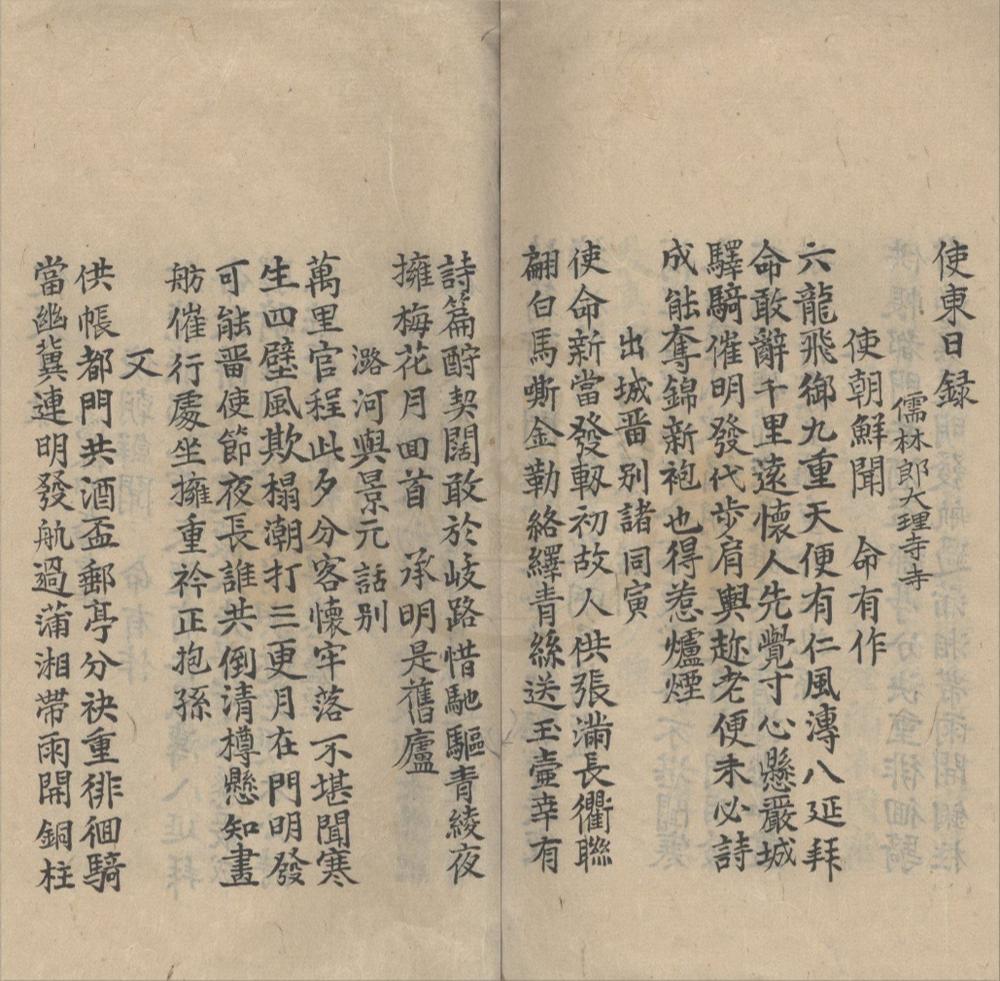 使東日録
儒林郎大理寺寺
使朝鮮聞　命有作
六龍飛御九重天便有仁風漙八延拜
命敢辭千里遠懷人先覺寸心懸嚴城
驛騎催明發代步肩輿趂老便未必詩
成能奪錦新袍也得惹爐煙
出城畱别諸同寅
使命新當發軔初故人供張滿長衢聮
翩白馬嘶金勒絡繹青絲送玉壷幸有
詩篇酧契闊敢於岐路惜馳驅青綾夜
擁梅花月回首　承明是舊廬
潞河與景元話别
萬里官程此夕分客懷牢落不堪聞寒
生四壁風欺榻潮打三更月在門明發
可能畱使節夜長誰共倒清樽懸知畫
舫催行處坐擁重衿正抱孫
又
供帳都門共酒盃郵亭分袂重徘徊騎
當幽冀連明發航過蒲湘帶雨開銅柱